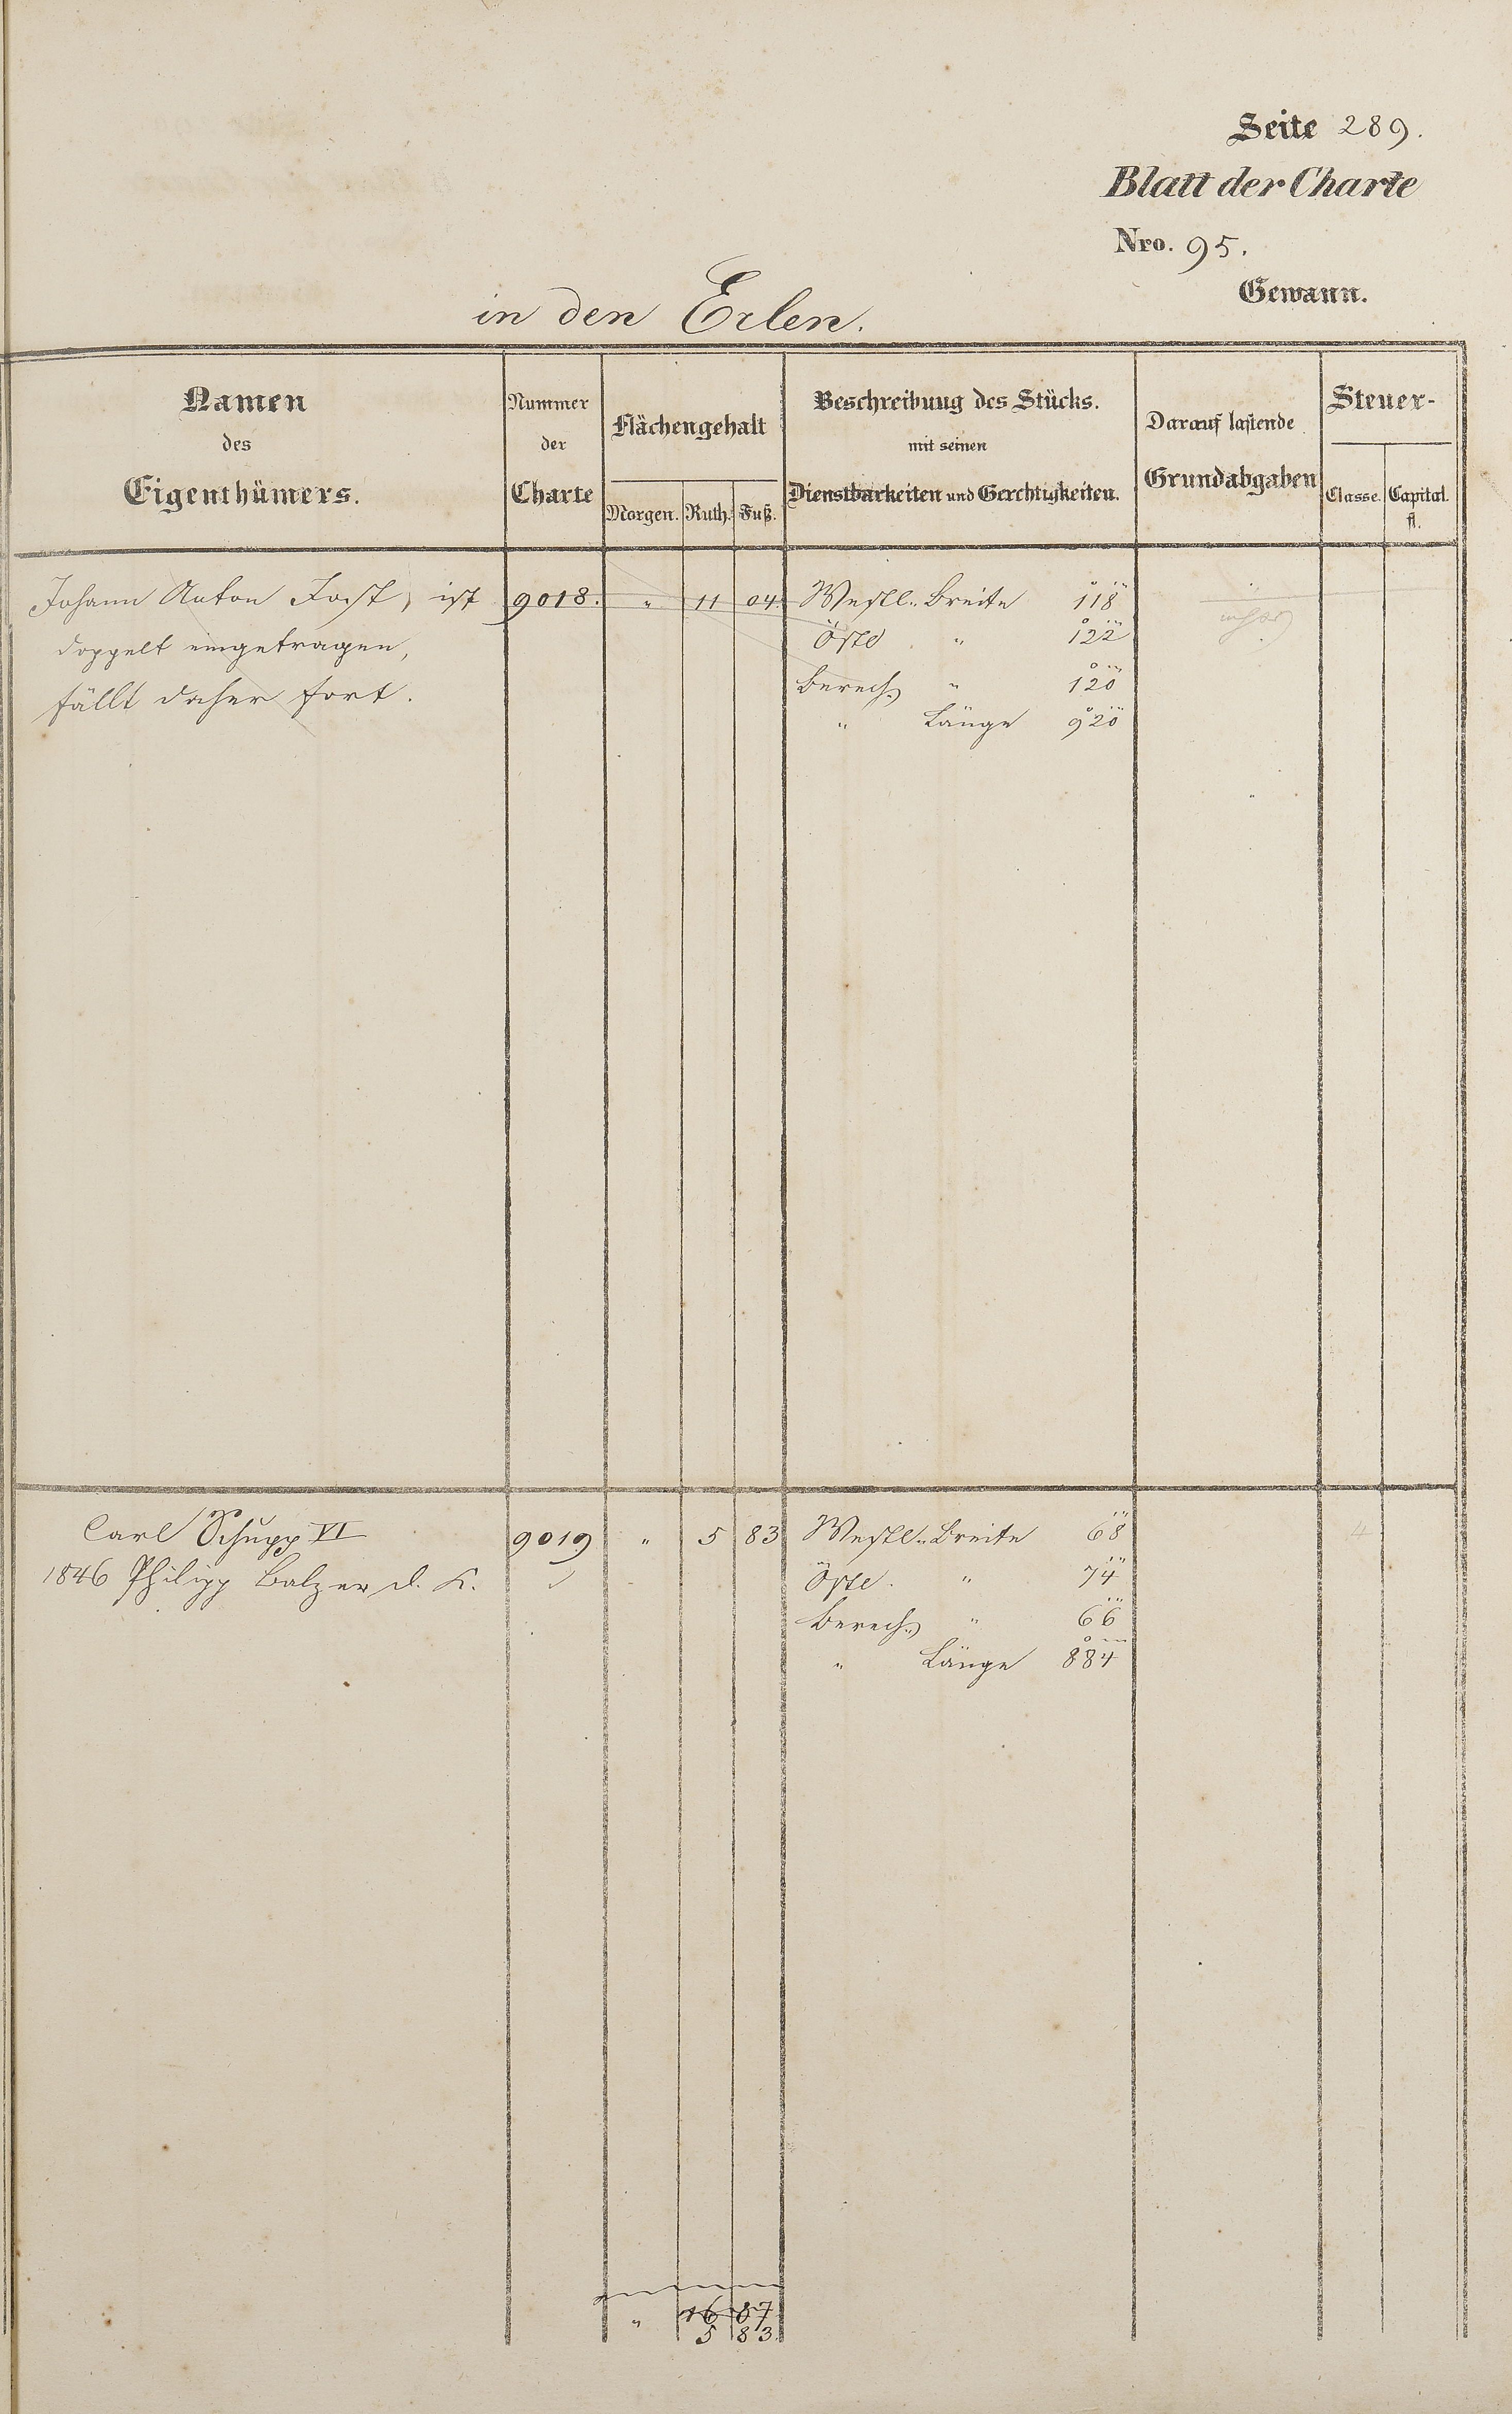 Seite 289.
Blatt der Charte
Nro. 95.
Gewann.
in den Erlen.
Namen
des
Eigenthümers.
Nummer
der
Charte
Flächengehalt
Morgen. Ruth. Fuß.
Beschreibung des Stücks.
mit seinen
Dienstbarkeiten und Gerechtigkeiten.
Darauf lastende
Grundabgaben
Steuer-
Classe. Capital.
fl.
Johann Anton Jost, ist 9018. " 11 04 Westl. Breite 118
doppelt eingetragen, Östl " 122
fällt daher fort. Berech. " 120
" Länge 920
Carl Schupp VI 9019 " 5 83 Westl. Breite 68
1846 Philipp Balzer d. K. Östl. " 74
Berech. " 66
" Länge 884
4
" 16 87
5 83.